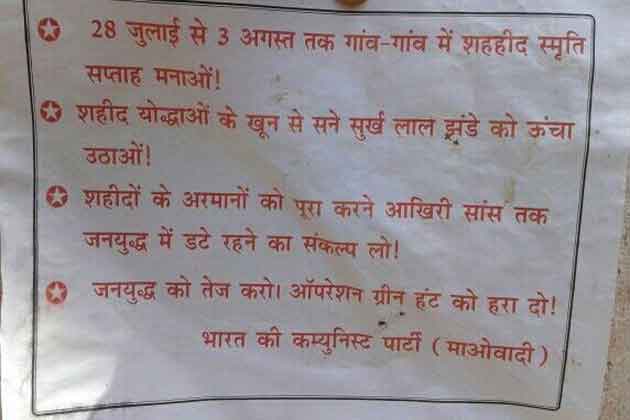 28 जुलाई से 3 अगस्त तक गांव-गांव में शहहीद स्मृति
सप्ताह मनाओं!
शहीद योद्धाओं के खून से सने सुर्ख लाल झंडे को ऊंचा
उठाओं!
शहीदों के अरमानों को पूरा करने आखिरी सांस तक
जनयुद्ध में डटे रहने का संकल्प लो!
जनयुद्ध को तेज करो। ऑपरेशन ग्रीन हंट को हरा दो!
भारत की कम्युनिस्ट पार्टी ( माओवादी )